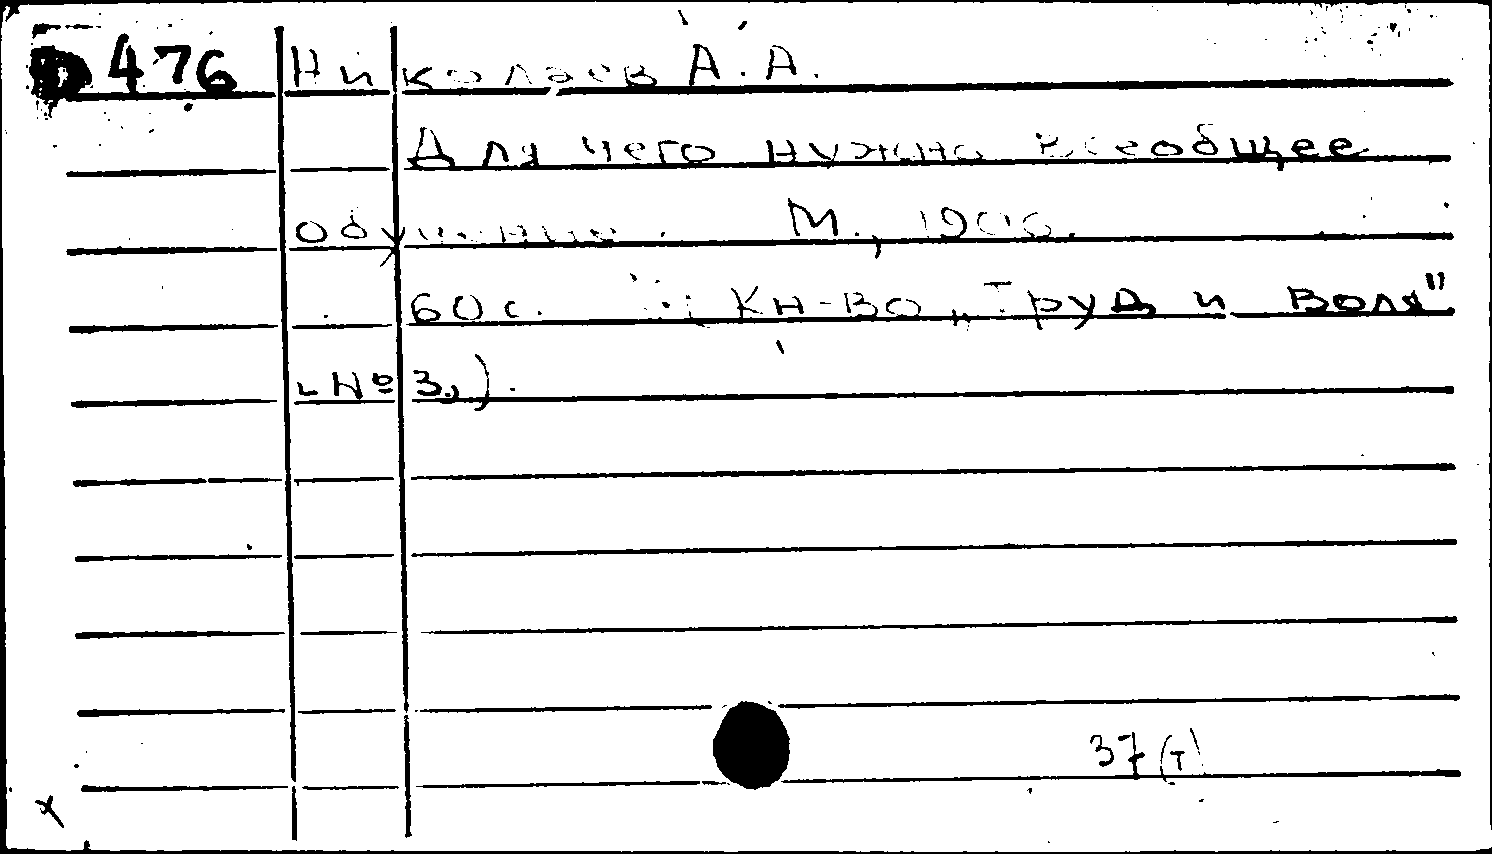 D476 Николаев А.А.
Для чего нужно всеобщее
обучение. М., 1906.
60 с. (Кн-во „Труд и Воля"
№ 3.).
37(т)